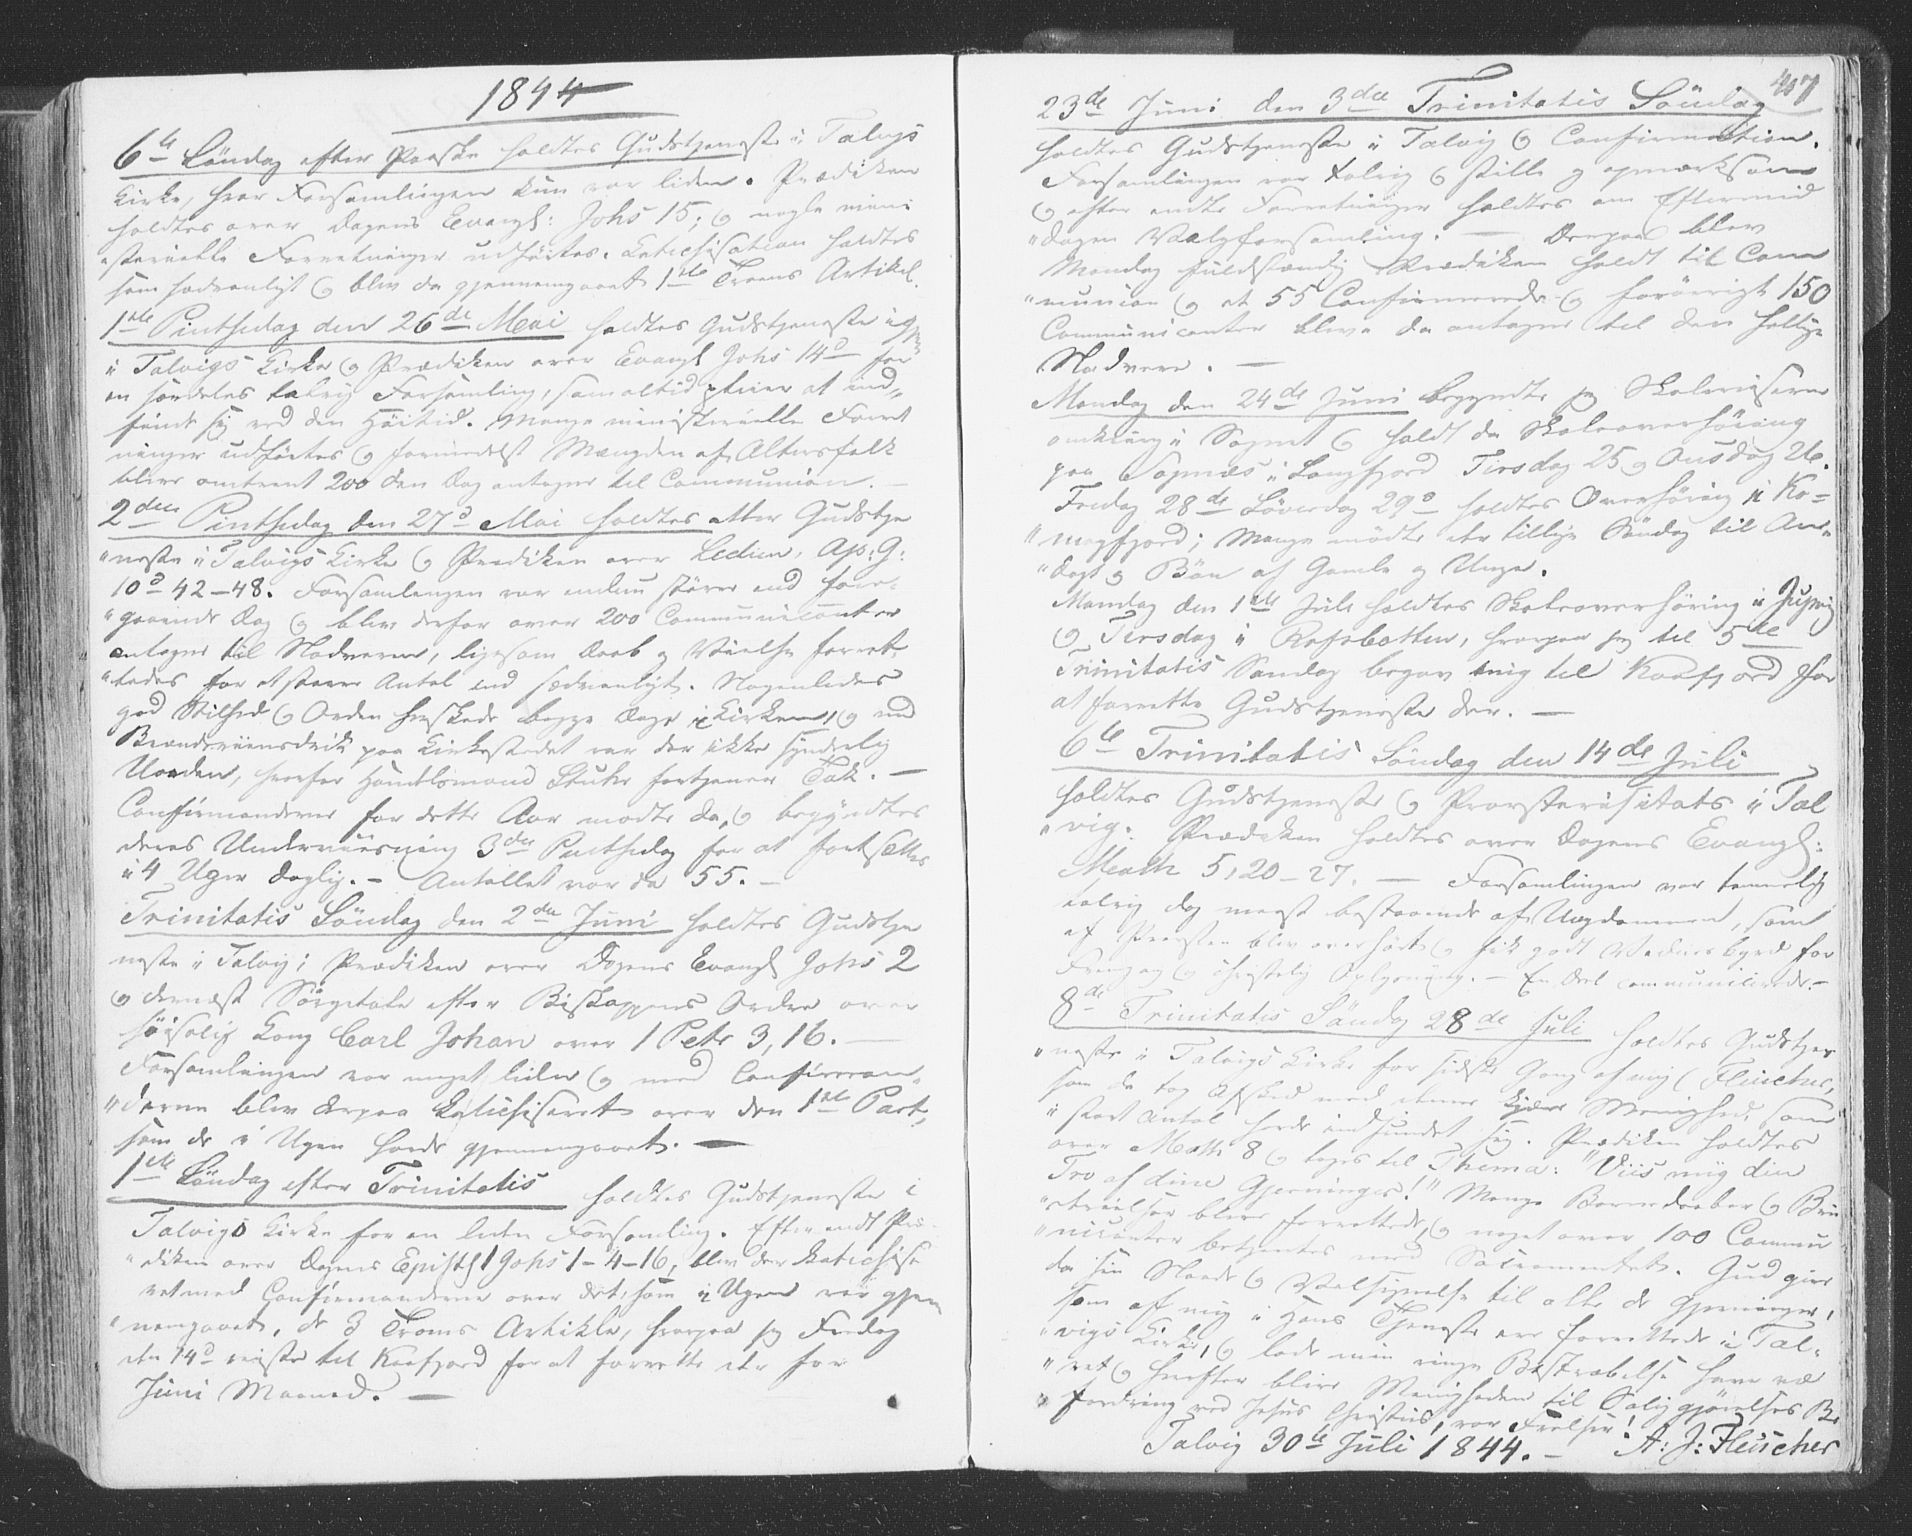 1844
6te Söndag efter Paaske holdtes Gudstjeneste i Talvigs
Kirke, hvor Forsamlingen kun var liden. Prædiken
holdtes over Dagens Evangl: Johs 15; og nogle mini-
sterielle Forretninger udførtes. Catechisation holdtes
som sædvanligt og blev da gjennemgaaet 1ste Troens Artikel.
1ste Pintsedag den 26de Mai holdtes Gudstjeneste igjen
i Talvigs Kirke og Prædiken over Evangl Johs 14de for
en særdeles talrig Forsamling, som altid pleier at ind-
finde sig ved den Høitid. Mange ministerielle Forret
ninger udførtes og formedelst Mængden af Altersfolk
blev omtrent 200 den Dag antagne til Communion. -
2den Pintsedag den 27de Mai holdtes atter Gudstje
"neste i Talvigs Kirke og Prædiken over Lectien, Ap: G:
10de 42-48. Forsamlingen var endnu større end fore-
"gaaende Dag og blev derfor over 200 Communicanter
antagne til Nadveren, ligesom Daab og Vielse forret-
"tedes for et større Antal end sædvanligt. Nogenledes
god Stilhed og Orden herskede begge Dage i Kirken, og med
Brændeviinsdrik paa Kirkestedet var der ikke synderlig
Uorden, hvorfor Handelsmand Buck fortjener Tak. -
Confirmanderne for dette Aar mødte da, og begyndtes
deres Underviisning 3die Pintsedag for at fortsættes
i 4 Uger daglig. - Antallet var da 55. -
Trinitatis Söndag den 2den Juni holdtes Gudstje
neste i Talvig; Prædiken over Dagens Evangl Johs 2
og dernæst Sørgetale efter Biskoppens Ordre over
høisalig Kong Carl Johan over 1 Petr 3, 16. -
Forsamlingen var noget liden og med Confirman-
"derne blev derpaa Catechiseret over den 1ste Part,
som de i Ugen havde gjennemgaaet. -
1ste Söndag efter Trinitatis holdtes Gudstjeneste i
Talvigs Kirke for en liden Forsamling. Efter endt Præ-
"diken over Dagens Epistl 1 Johs 1-4-16, blev der Catechise
ret med Confirmanderne over det, som i Ugen var gjen
"nemgaaet, de 3 Troens Artikler, hvorpaa jeg Fredag
den 14de reiste til Kaafjord for at forrette der for
Juni Maaned. -
407
23de Juni den 3die Trinitatis Söndag
holdtes Gudstjeneste i Talvig og Confirmation.
Forsamlingen var talrig og stille og opmærksom
og efter endte Forretninger holdtes om Eftermid
"dagen Valgforsamling. - Derpaa blev
Mandag fuldstændig Prædiken holdt til Com
"munion og at 55 Confirmerede og forövrigt 150
Communicanter bleve da antagne til den hellige
Nadvere. -
Mandag den 24de Juni begyndte jeg Skolereiserne
omkring i Sognet og holdt da Skoleoverhøring
paa Sopnæs i Langfjord Tirsdag 25 og Onsdag 26.
Fredag 28de Löverdag 29de holdtes Overhøring i Ko-
"magfjord; Mange mødte der tillige Søndag til An-
"dagt og Bön af Gamle og Unge.
Mandag den 1ste Juli holdtes Skoleoverhøring i Jupvig
og Tirsdag i Rafsbotten, hvorpaa jeg til 5te
Trinitatis Søndag begav mig til Kaafjord for
at forrette Gudstjeneste der. -
6te Trinitatis Söndag den 14de Juli
holdtes Gudstjeneste og Provstevisitats i Tal
"vig. Prædiken holdtes over Dagens Evangl:
Math 5, 20-27. - Forsamlingen var temmelig
talrig dog meest bestaaende af Ungdommen, som
af Provsten blev overhørt og fik godt Vidnesbyrd for
Fremgang og christelig Oplysning. - En Deel communicerede. -
8de Trinitatis Söndag 28de Juli holdtes Gudstjen
"neste i Talvigs Kirke for sidste Gang af mig (Fleischer,
som da tog Afsked med denne kjære Menighed, som
i stort Antal havde indfundet sig. Prædiken holdtes
over Math 8 og toges til Thema: "Viis mig din
Tro af dine Gjerninger!" Mange Barnedaaber og Bru
"devielser bleve forrettede, og noget over 100 Commu
"nicanter betjentes med Sacramentet. Gud give
da sin Naade og Velsignelse til alle de Gjerninger,
som af mig i Hans Tjeneste ere forrettede i Tal-
"vigs Kirke, og lade min ringe Bestræbelse have væ
"ret og herefter blive Menigheden til Saliggjørelses Be
"fordring ved Jesus Christus, vor Frelser!
Talvig 30te Juli 1844. - A: J: Fleischer